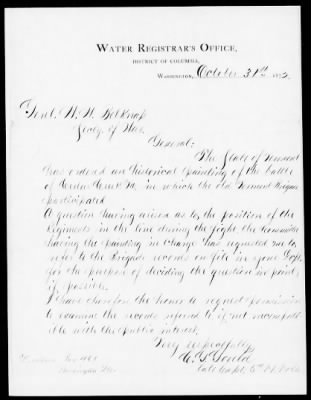 WATER REGISTRAR'S OFFICE,
DISTRICT OF COLUMBIA,
WASHINGTON, October 31st 1872
Genl. W. W. Belknap
Secy. of War
General:
The State of Vermont
has ordered an historical painting of the battle
of Cedar Creek Va. in which the old Vermont Brigade
participated
A question having arisen as to the position of the
Regiments in the line during the fight, the Committee
having the painting in charge has requested me to
refer to the Brigade records on file in your Dept.
for the purpose of deciding the question in point
if possible.
I have therefore the honor to request permission
to examine the records referred to if not incompat-
ible with the public interest.
Very respectfully
C. G. Gould
late Capt. 5th Vt. Vols